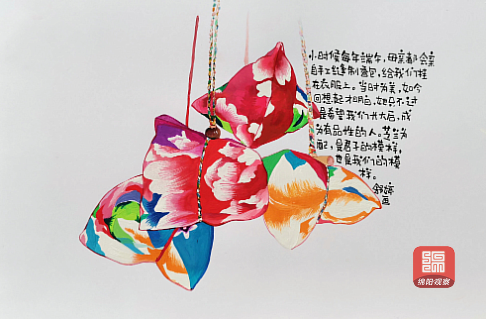 小时候每年端午，母亲都会亲
自手工缝制香包，给我们挂
在衣服上。当时为美，如今
回想起才明白，她只不过
是希望我们长大后，成
为有品性的人。芝兰为
配，是君子的模样，
也是我们的模
样。
舒婷
画
绵阳观察